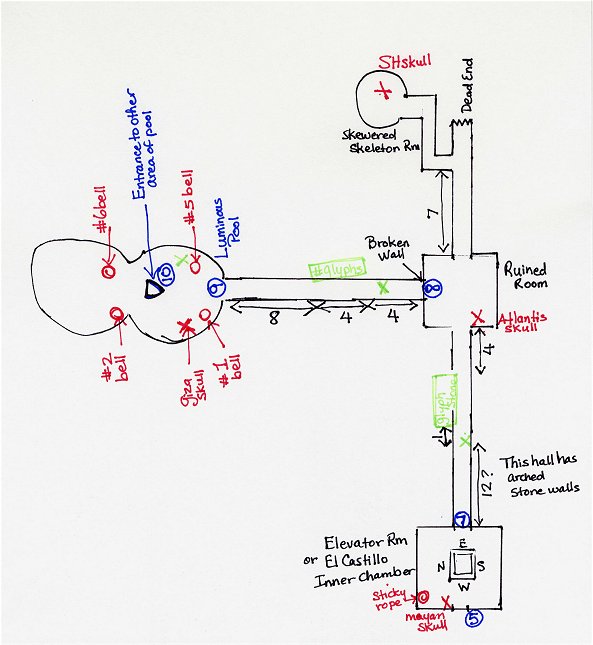 SHskull
Dead End
Skewered
Skeleton Rm
7
Entrance to other
area of pool
#6 bell
#5 bell
Luminous
Pool
10
9
#glyphs
Broken
Wall
8
Ruined
Room
8
4
4
Atlantis
skull
#2
bell
giza
skull
#1
bell
4
glyph
stone
1
12?
This hall has
arched
stone walls
7
Elevator Rm
or El Castillo
Inner Chamber
E
N
S
W
sticky
rope
mayan
skull
5